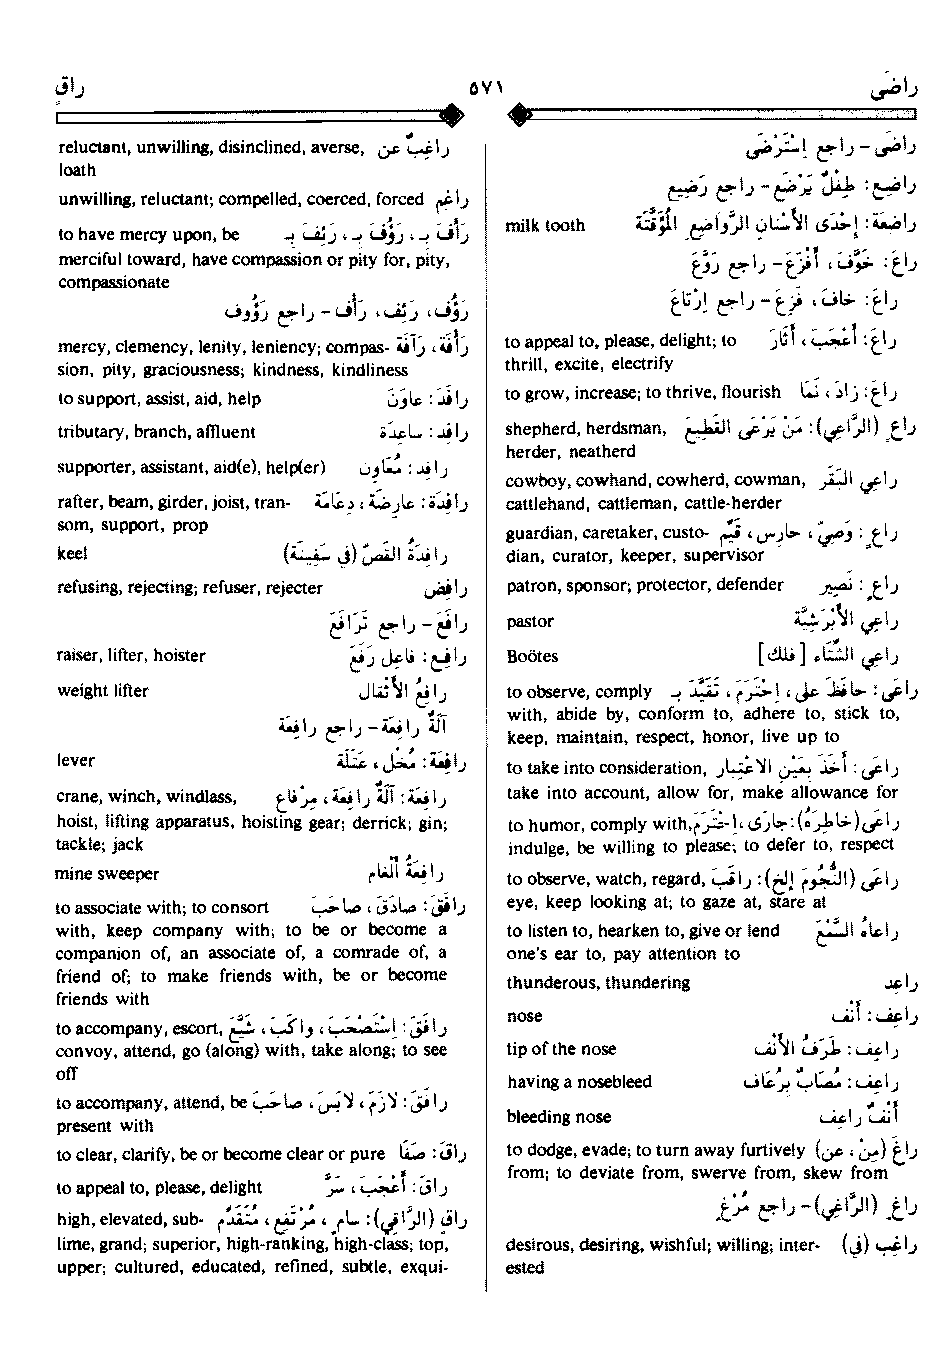 راضَى
٥٧١
راقٍ
راضَى – راجع إسْتَرْضَى
راضِع: طِفْلٌ يَرْضَع – راجع رَضِيع
راضِعَة: إحْدَى الأسْنانِ الرَّواضِعِ المُؤَقَّتَة milk tooth
راعَ: خَوَّفَ، أفْزَعَ – راجع رَوَّعَ
راعَ: خافَ، فَزِعَ – راجع إرْتاعَ
راعَ: أعْجَبَ، أثارَ to appeal to, please, delight; to
thrill, excite, electrify
راعَ: زادَ، نَمَا to grow, increase; to thrive, flourish
راعٍ (الرَّاعِي): مَنْ يَرْعَى القَطِيعَ shepherd, herdsman,
herder, neatherd
راعِي البَقَر cowboy, cowhand, cowherd, cowman,
cattlehand, cattleman, cattle-herder
راعٍ: وَصِيّ، حارِس، قَيِّم guardian, caretaker, custo-
dian, curator, keeper, supervisor
راعٍ: نَصِير patron, sponsor; protector, defender
راعِي الأَبْرَشِيَّة pastor
راعِي الشِّتَاء [فلك] Boötes
راعَى: حافَظَ على، إحْتَرَمَ، تَقَيَّدَ بـ to observe, comply
with, abide by, conform to, adhere to, stick to,
keep, maintain, respect, honor, live up to
راعَى: أخَذَ بِعَيْنِ الاعْتِبار to take into consideration,
take into account, allow for, make allowance for
راعَى (خاطِرَهُ): جارَى، إحْتَرَمَ to humor, comply with,
indulge, be willing to please; to defer to, respect
راعَى (النُّجُومَ إلخ): راقَبَ to observe, watch, regard,
eye, keep looking at; to gaze at, stare at
راعاهُ السَّمْعَ to listen to, hearken to, give or lend
one's ear to, pay attention to
راعِد thunderous, thundering
راعِف: أنْف nose
راعِف: طَرَفُ الأنْف tip of the nose
راعِف: مُصَابٌ بِرُعَاف having a nosebleed
أنْفٌ راعِف bleeding nose
راغَ (مِنْ، عن) to dodge, evade; to turn away furtively
from; to deviate from, swerve from, skew from
راغٍ (الرَّاغِي) – راجع مُرْغٍ
راغِب (في) desirous, desiring, wishful; willing; inter-
ested
راغِبٌ عن reluctant, unwilling, disinclined, averse,
loath
راغِم unwilling, reluctant; compelled, coerced, forced
رَأَفَ بـ، رَؤُفَ بـ، رَئِفَ بـ to have mercy upon, be
merciful toward, have compassion or pity for, pity,
compassionate
رَؤُف، رَئِف، رَأْف – راجع رَؤُوف
رَأْفَة، رَآفَة mercy, clemency, lenity, leniency; compas-
sion, pity, graciousness; kindness, kindliness
رافَدَ: عاوَنَ to support, assist, aid, help
رافِد: ساعِدَة tributary, branch, affluent
رافِد: مُعَاوِن supporter, assistant, aid(e), help(er)
رافِدَة: عارِضَة، دِعَامَة rafter, beam, girder, joist, tran-
som, support, prop
رافِدَةُ القَصّ (في سَفِينَة) keel
رافِض refusing, rejecting; refuser, rejecter
رافَعَ – راجع تَرَافَعَ
رافِع: فاعِل رَفَعَ raiser, lifter, hoister
رافِعُ الأثْقَال weight lifter
آلَةٌ رافِعَة – راجع رافِعَة
رافِعَة: مُخْل، عَتَلَة lever
رافِعَة: آلَةٌ رافِعَة، مِرْفَاع crane, winch, windlass,
hoist, lifting apparatus, hoisting gear; derrick; gin;
tackle; jack
رافِعَةُ ألْغَام mine sweeper
رافَقَ: صادَقَ، صاحَبَ to associate with; to consort
with, keep company with; to be or become a
companion of, an associate of, a comrade of, a
friend of; to make friends with, be or become
friends with
رافَقَ: إسْتَصْحَبَ، واكَبَ، شَيَّعَ to accompany, escort,
convoy, attend, go (along) with, take along; to see
off
رافَقَ: لازَمَ، لابَسَ، صاحَبَ to accompany, attend, be
present with
راقَ: صَفَا to clear, clarify, be or become clear or pure
راقَ: أعْجَبَ، سَرَّ to appeal to, please, delight
راقٍ (الرَّاقِي): سامٍ، مُرْتَفِع، مُتَقَدِّم high, elevated, sub-
lime, grand; superior, high-ranking, high-class; top,
upper; cultured, educated, refined, subtle, exqui-